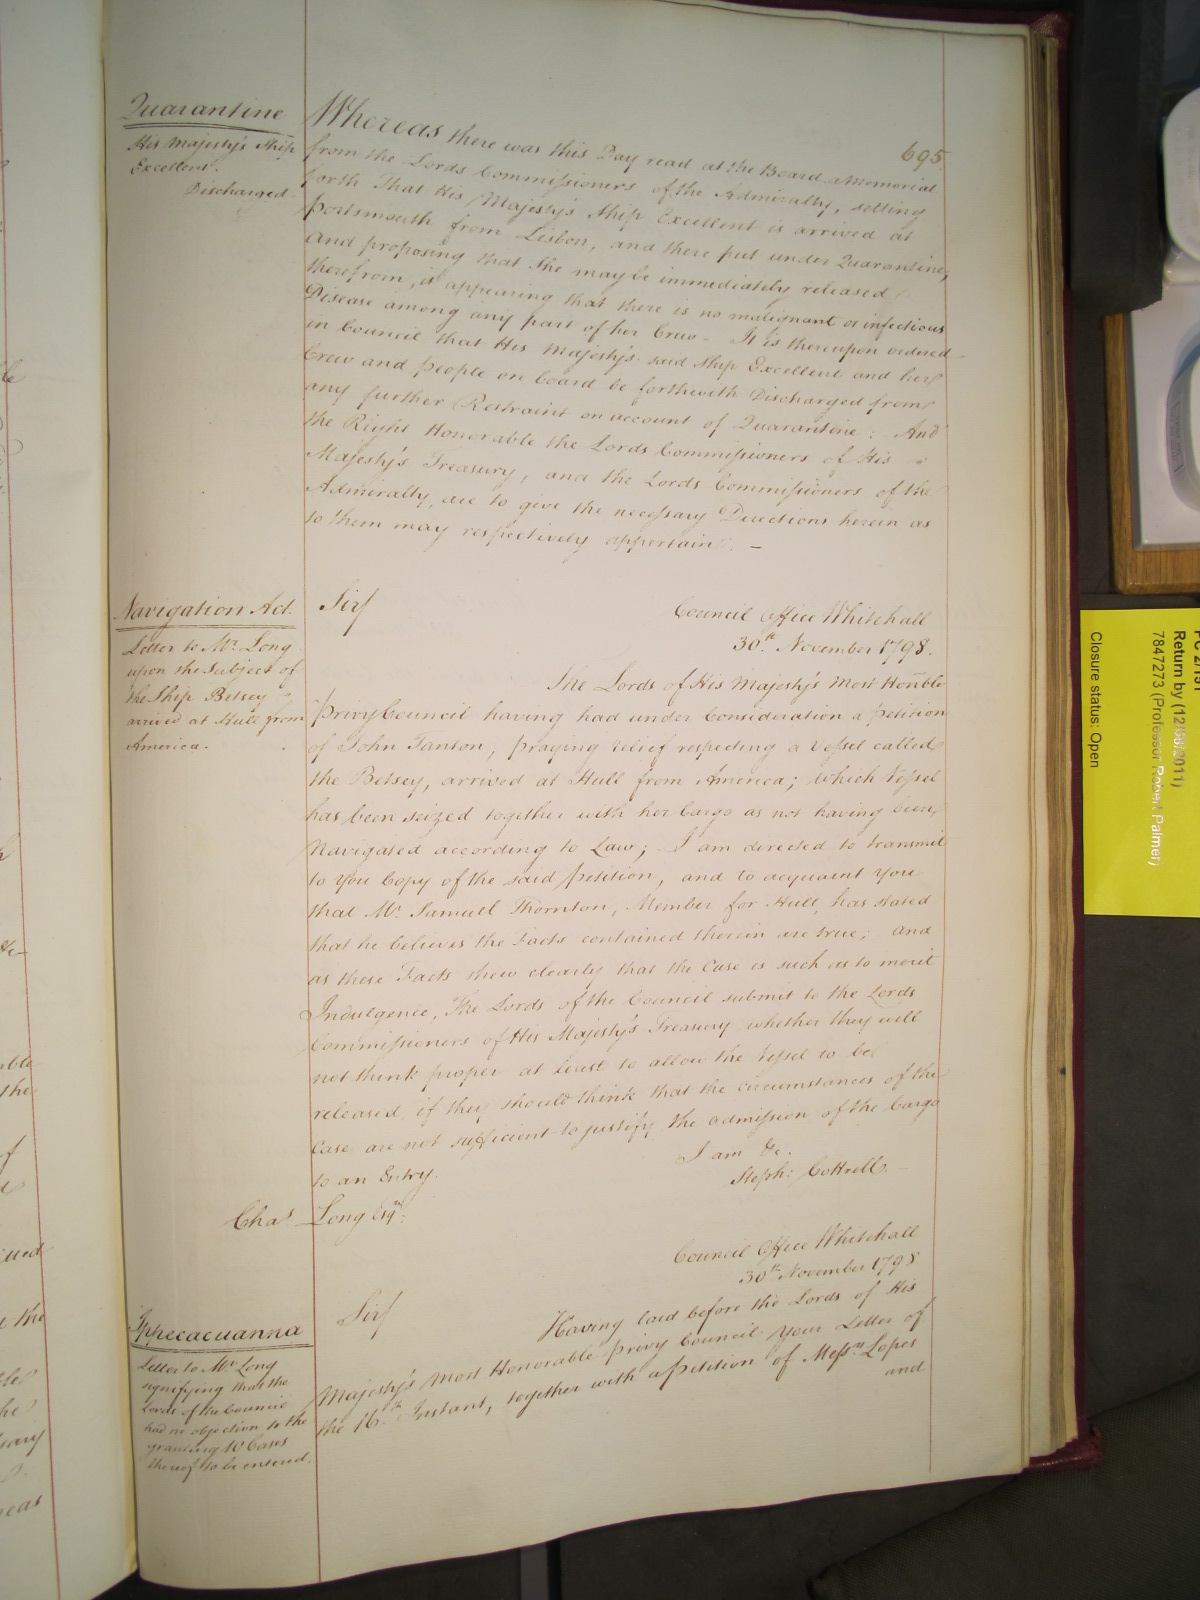 695
Quarantine
His Majesty's Ship
Excellent.
Discharged
Whereas there was this Day read at the Board a Memorial
from the Lords Commissioners of the Admiralty, setting
forth That His Majesty's Ship Excellent is arrived at
Portsmouth from Lisbon, and there put under Quarantine,
And proposing that She may be immediately released
therefrom, it appearing that there is no malignant or infectious
Disease among any part of her Crew - It is thereupon ordered
in Council that His Majesty's said Ship Excellent and her
Crew and people on board be forthwith Discharged from
any further Restraint on account of Quarantine: And
the Right Honorable the Lords Commissioners of His
Majesty's Treasury, and the Lords Commissioners of the
Admiralty, are to give the necessary Directions herein as
to them may respectively appertain. —
Navigation Act.
Letter to Mr. Long
upon the Subject of
the Ship Betsey
arrived at Hull from
America.
Sir
Council Office Whitehall
30th November 1798.
The Lords of His Majesty's Most Honble
Privy Council having had under Consideration a petition
of John Tanton, praying relief respecting a Vessel called
the Betsey, arrived at Hull from America; which Vessel
has been seized together with her Cargo as not having been
Navigated according to Law; I am directed to transmit
to You Copy of the said petition, and to acquaint you
that Mr. Samuel Thornton, Member for Hull, has stated
that he believes the Facts contained therein are true; and
as these Facts shew clearly that the Case is such as to merit
Indulgence, The Lords of the Council submit to the Lords
Commissioners of His Majesty's Treasury whether they will
not think proper at least to allow the Vessel to be
released, if they should think that the circumstances of the
Case are not sufficient to justify the admission of the Cargo
to an Entry.
I am &c.
Steph: Cottrell. —
Chas Long Esqr.
Council Office Whitehall
30th November 1798
Ippecacuanna
Letter to Mr Long
signifying that the
Lords of the Council
had no objection to the
granting 10 Cases
thereof to be entered.
Sir
Having laid before the Lords of His
Majesty's Most Honorable Privy Council Your Letter of
the 16th Instant, together with a petition of Messrs Lopes
and
Return by (12/08/2011)
7847273 (Professor Robert Palmer)
Closure status: Open